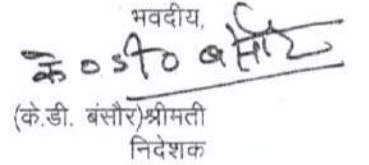 भवदीय,
के० डी० बंसौर
(के.डी. बंसौर)श्रीमती
निदेशक